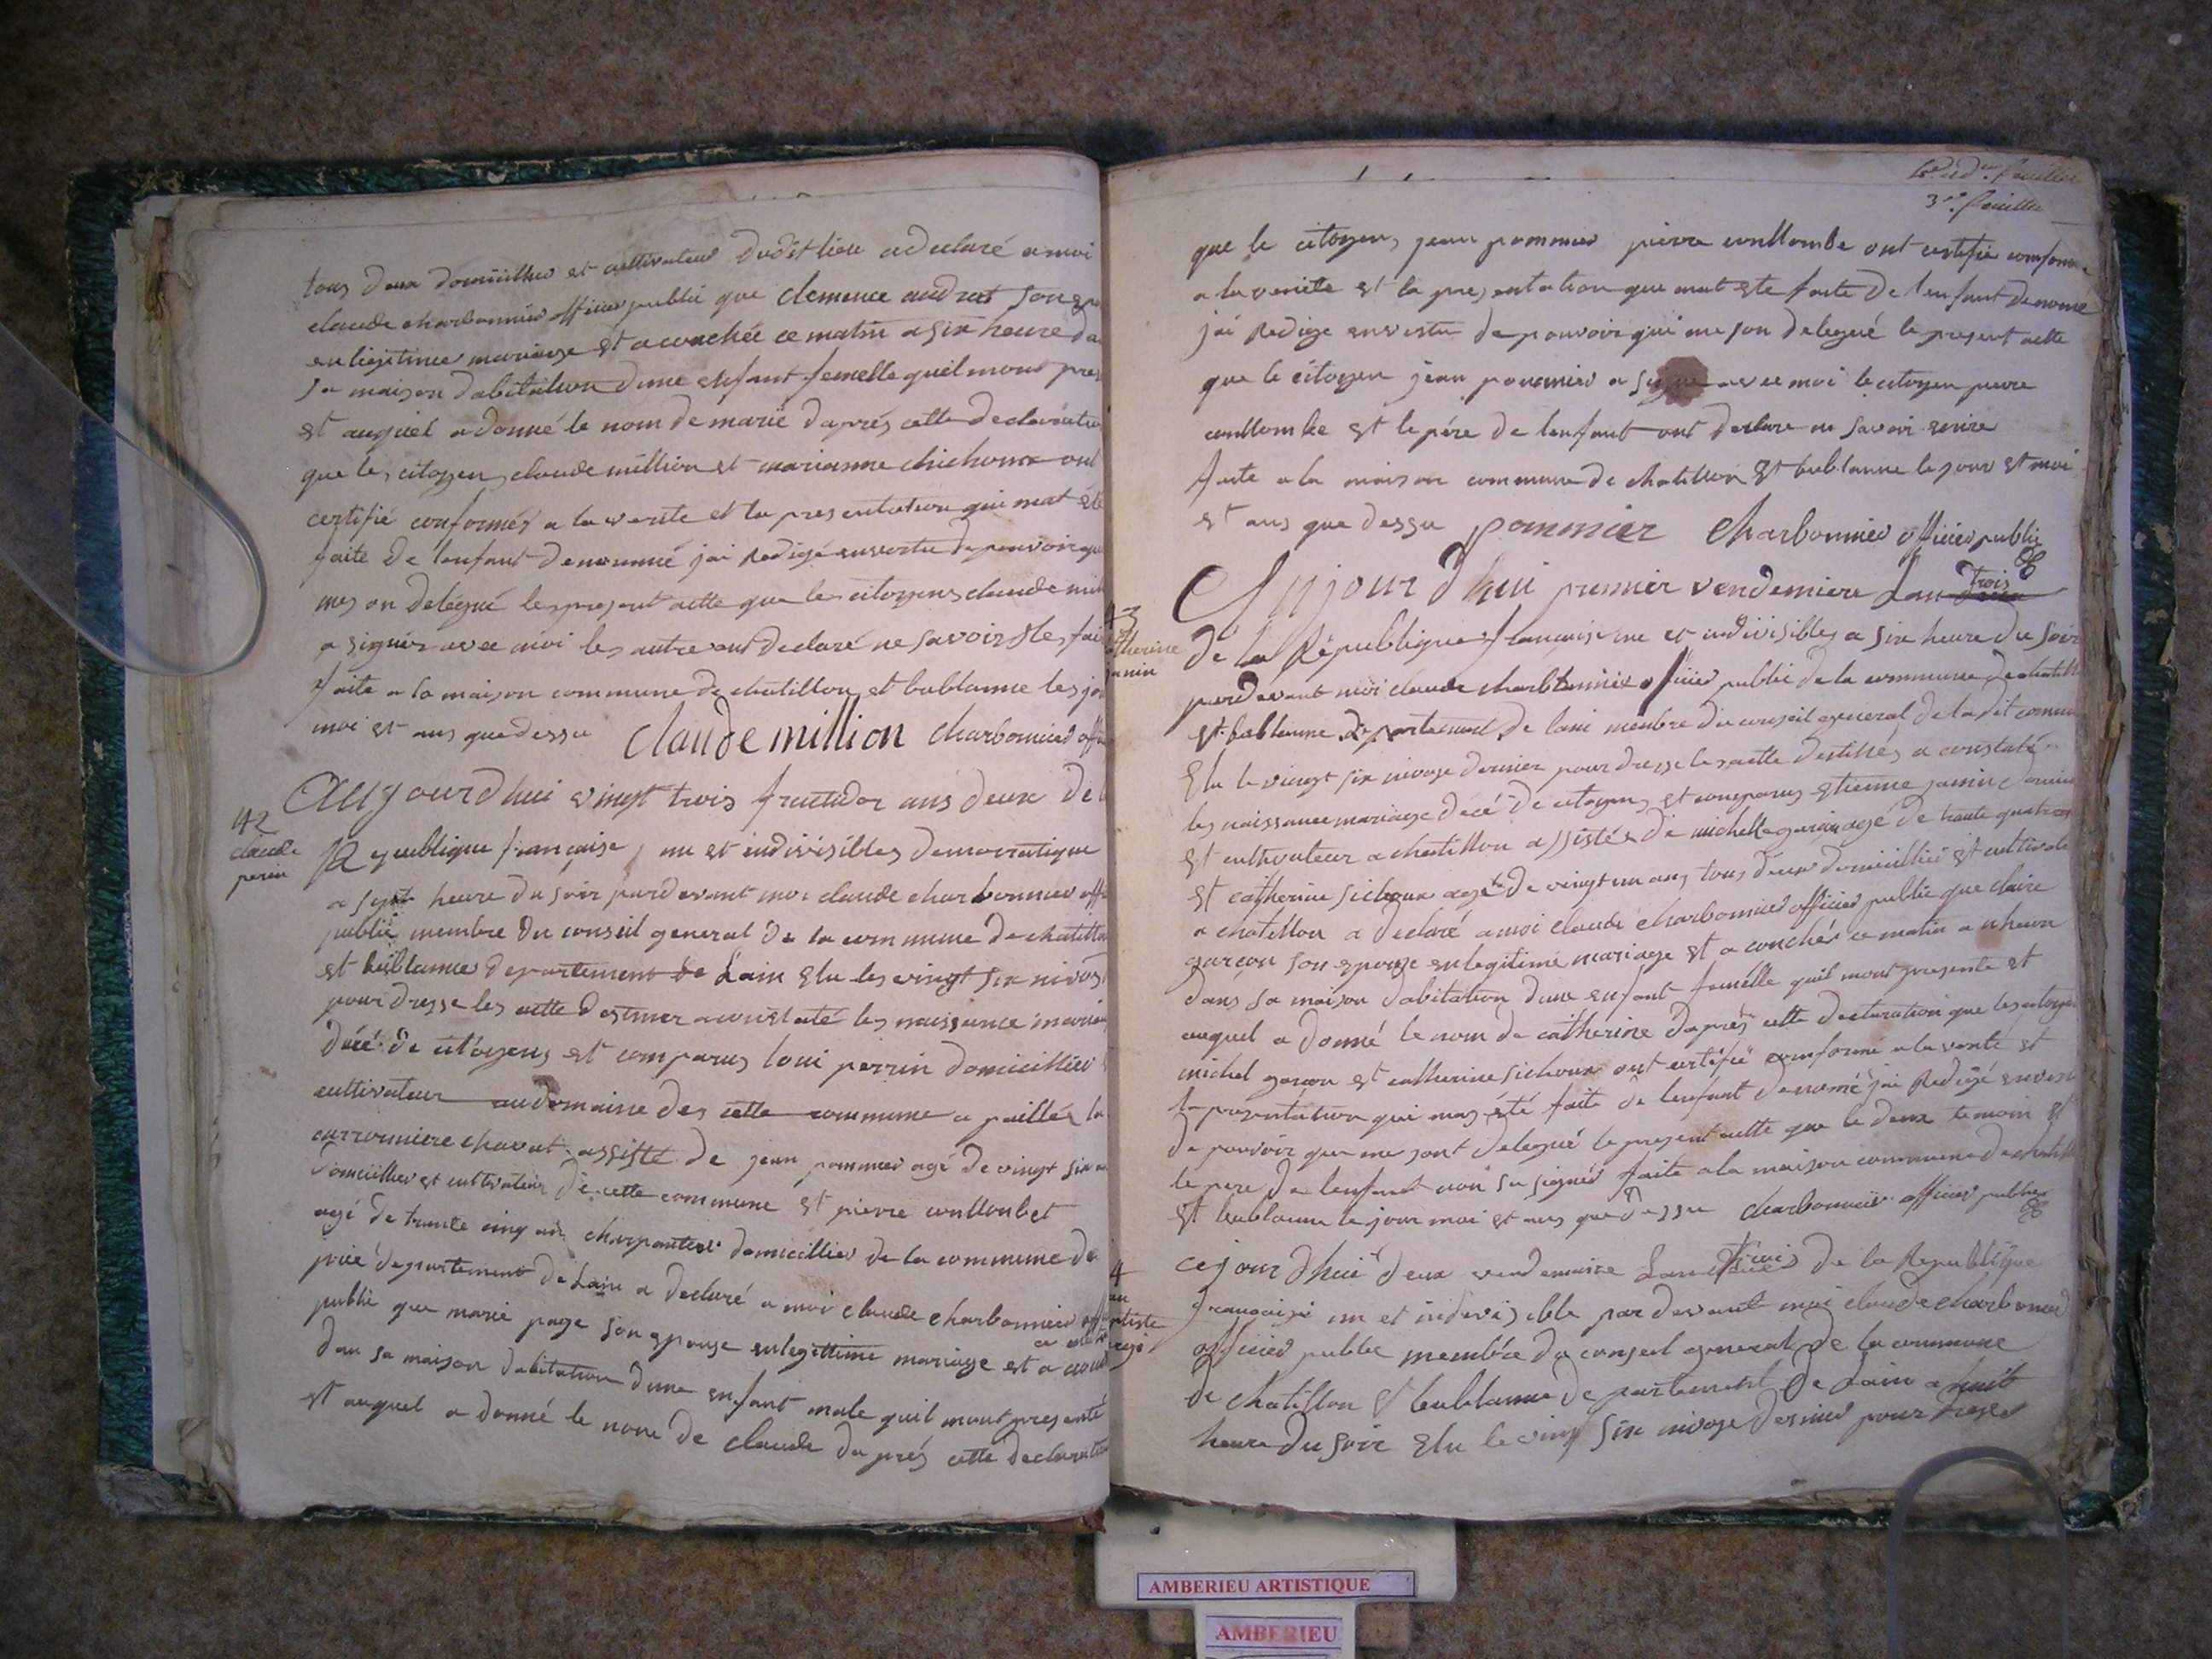 tous deux domicillier et cultivateur dudit lieu a declaré a moi
claude charbonnier officier public que clemence audrat son
en legitimer mariage et acouchée ce matin a six heure
sa maison dabitation dune enfant femelle quil mont
et auquel a donné le nom de marie daprés cette declaration
que les citoyen claude million et marianne chichoux ont
certifié conformér a la verite et la presentation qui mat été
faite de lenfant denommé jai redigé envertu de pouvoir que
mes on delégué les present actte que les citoyens claude
a signér avec moi les autre ont declaré ne savoir
faite a la maison commune de chatillon et bublanne les
moi et ans que dessu claude million charbonnier
42
claude
perin
Aujourdhui vingt trois fructidor ans deux de
Republique française, une et indivisibles democratique
a sept heure du soir pardevant moi claude charbonnier
public membre du conseil general de la commune de chatillon
et bublanne departement de Lain Elu les vingt six nivos
pour dresse les actte destiner a constaté les naissance
décé de citoyens et comparus loui perrin domicillier
cultivateur au domaine des cette commune a paillér la
carronniere chavat assisté de jean pommier agé de vingt six
domicillier et cultivateur de cette commune et pierre coulloubet
agé de trante cinq an charpantier domicillier de la commune de
prié departement de Lain a declaré a moi claude charbonnier
public que marie page son epouse enlegittime mariage est a
ce
dan sa maison dabitation dune enfant male quil mont presenté
et auquel a donné le nom de claude da prés cette declaration
3e feuillet
que le citoyen, jean pommier pierre coullombe ont certifié conforme
a la verite et la presentation que mat ete faite de lenfant denomé
jai redige envertu de pouvoir qui me son delegué le present actte
que le citoyen jean pommier a signe avec moi le citoyen pierre
coullombe et le pére de lenfant ont declare ne savoir
faite a la maison commune de chatillon et bublanne le jour et moi
et ans que dessu pommier charbonnier officier public
43
catherine
janin
Aujourdhui premier vendemiere Lan trois
de la République française une et indivisibles a six heure du soir
pardevant moi claude charbonnier officier public de la commune de
et bublanne departement de lain membre du conseil general de la dit
Elu le vingt six nivose dernier pour dresse les actte destinés a constaté
les naissance mariage décé de citoyens et comparus etienne janin
et cultivateur a chatillon assistés de michelle garçon agé de trante quatre
et catherine sichoux agé de vingt un ans tous deux domicillier et cultivate
a chatillon a declaré a moi claude charbonnier officier public que claire
garçon son epouze enlegitime mariage et a couchér ce matin a heure
dans sa maison dabitation dune enfant femelle quil mont presente et
auquel a donné le nom de catherine daprés cette declaration que les
michel garçon et catherine sichoux ont certifié conforme a la verité et
la presentation qui mas été faite de lenfant denomé jai redigé
de pouvoir que me sont delegué le present actte que le deux temoin et
le pere de lenfant non su signér faite a la maison commune de
et bublanne le jour moi et ans que dessu charbonnier officier public
ce jourdhui deux vendemiaire Lan trois de la Republique
francaise un et indivisible par devant moi claude charbonnier
officier public membre du conseil general de la commune
de chatillon et bublanne departement de Lain a huit
heure du soir elu le vingt six nivose dernier pour dresser
AMBERIEU ARTISTIQUE
AMBERIEU